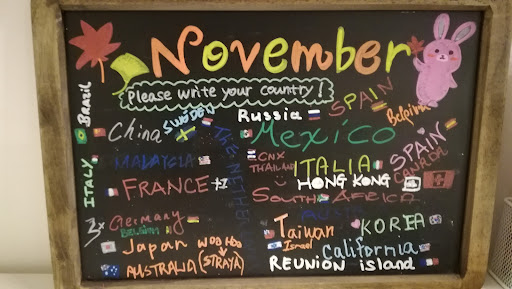 November
Please write your country!
Brazil
China
SWEDEN
Russia
SPAIN
Belgium
Mexico
MALAYSIA
CNX
THAILAND
ITALIA
SPAIN
CANADA
ITALY
FRANCE
HONG KONG
SOUTH AFRICA
3x Germany
BELGIUM
AUSTRIA
Taiwan
KOREA
Japan
WOOHOO
Israel
California
AUSTRALIA (STRAYA)
REUNION island